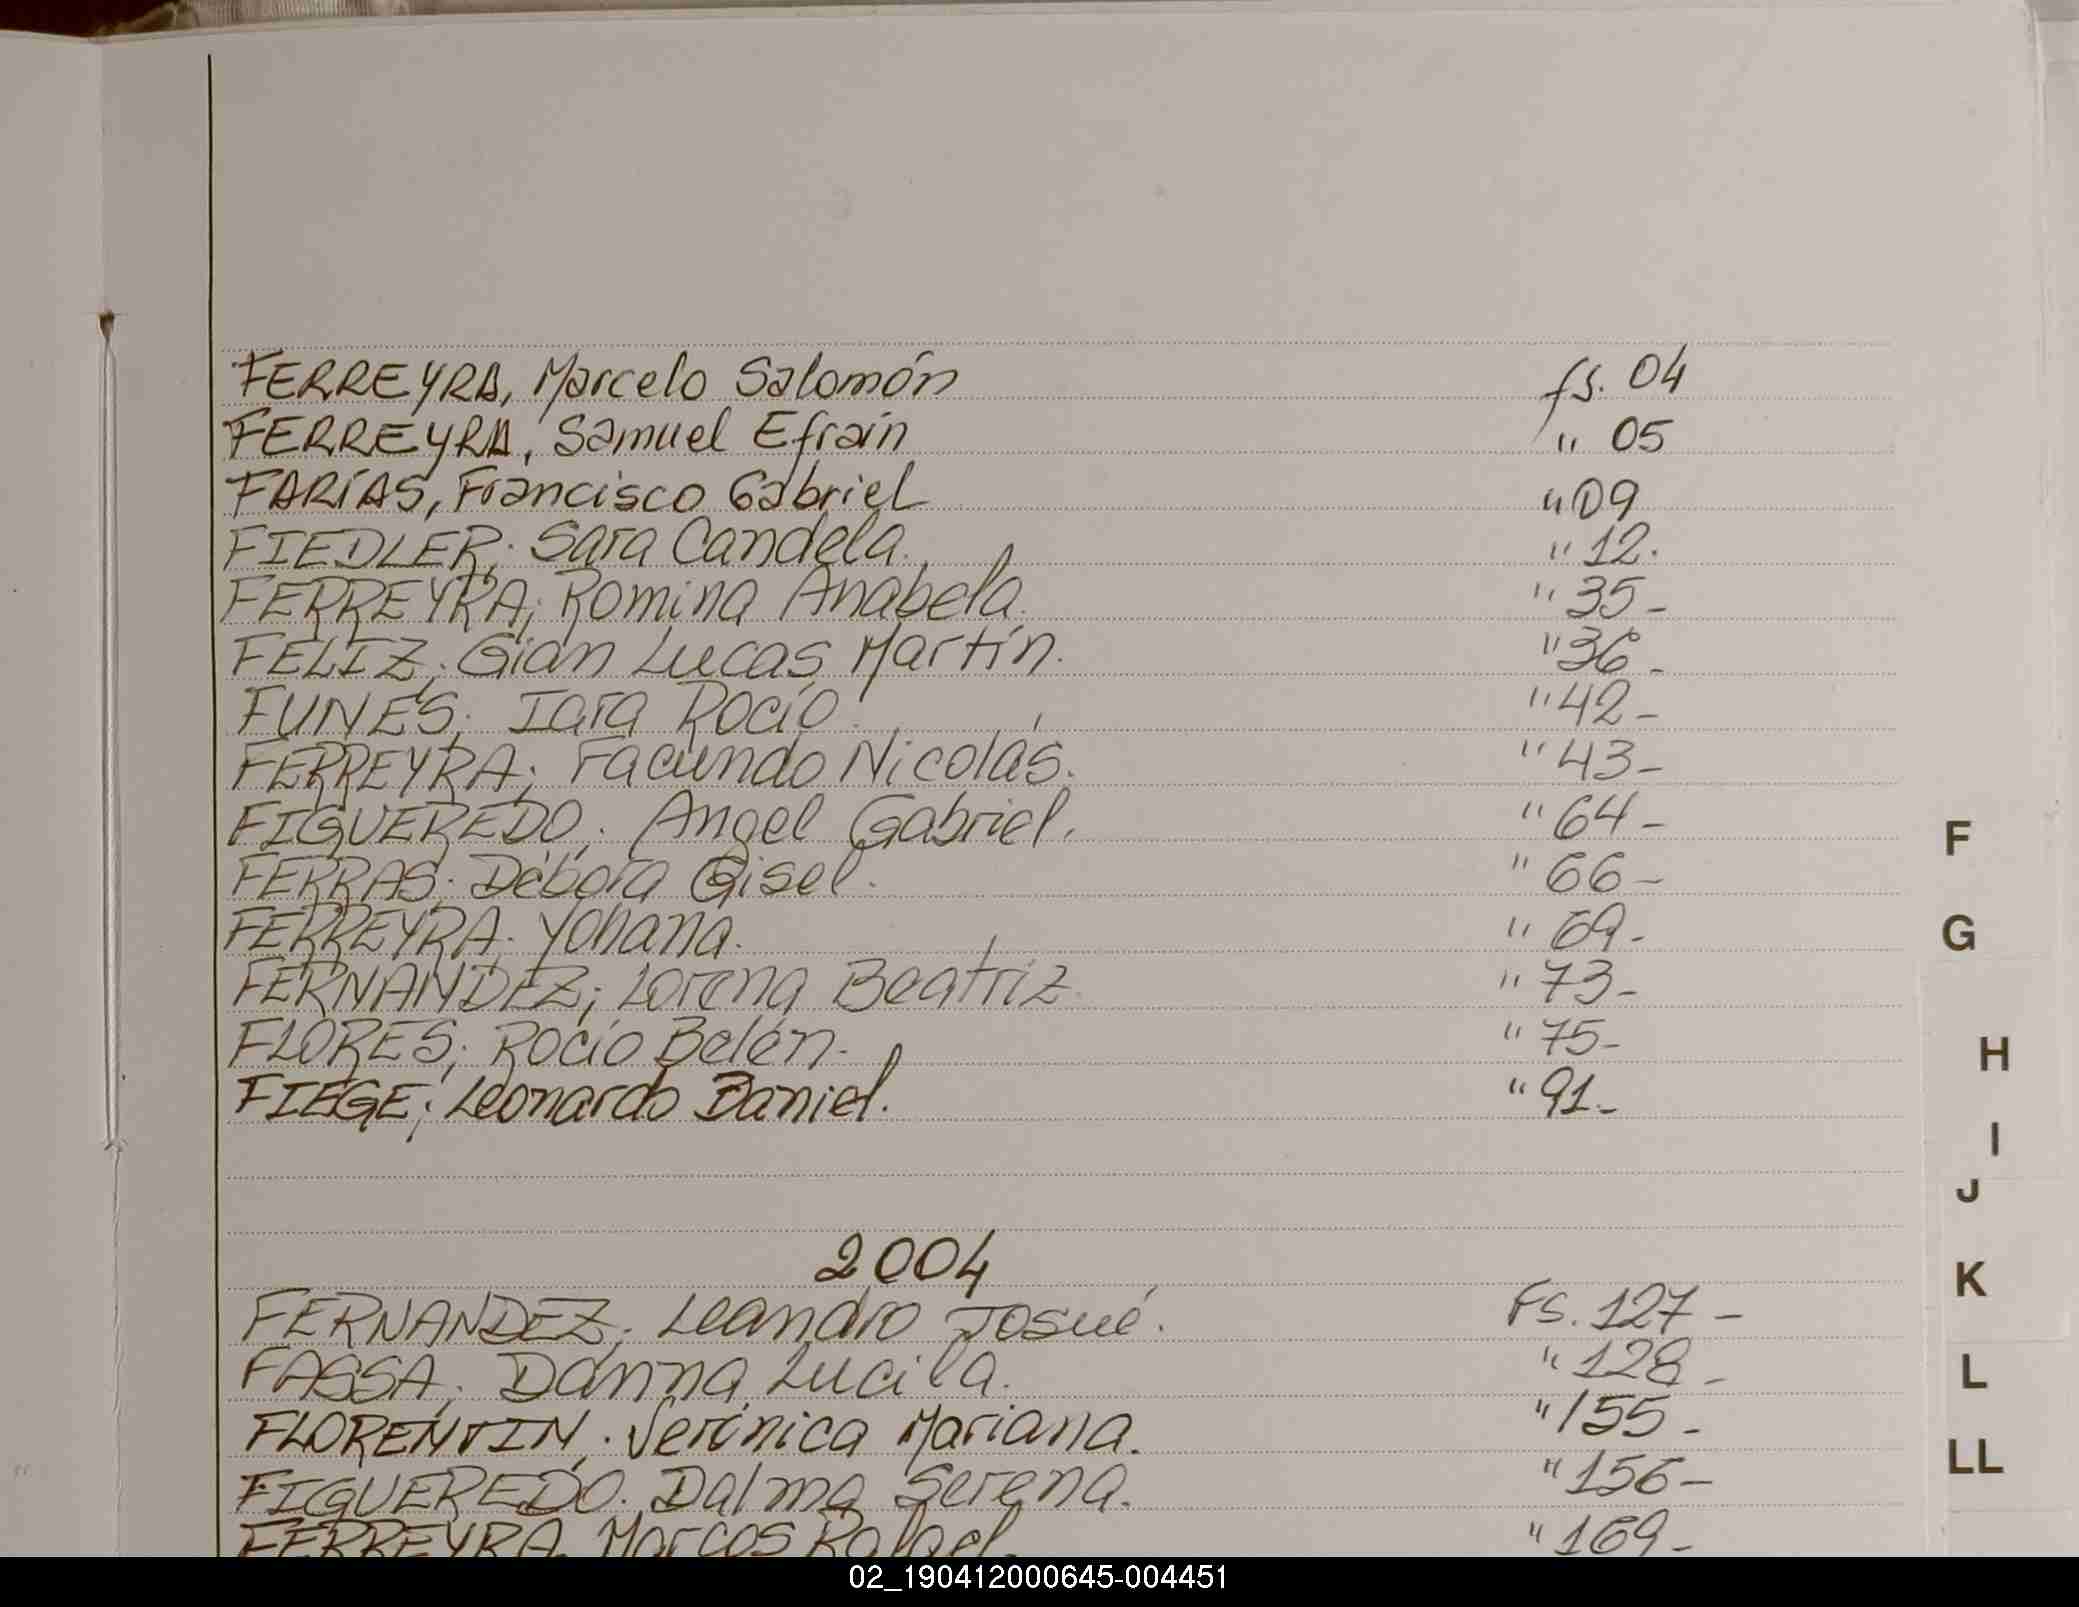 FERREYRA, Marcelo Salomón fs. 04
FERREYRA, Samuel Efraín " 05
FARÍAS, Francisco Gabriel " 09
FIEDLER; Sara Candela. " 12.
FERREYRA; Romina Anabela. " 35-
FELIZ; Gian Lucas Martín. " 36-
FUNES; Iara Rocío. " 42-
FERREYRA; Facundo Nicolás. " 43-
FIGUEREDO; Angel Gabriel. " 64-
FERRAS; Débora Gisel. " 66-
FERREYRA; Yohana. " 69-
FERNANDEZ; Lorena Beatriz. " 73-
FLORES; Rocío Belén. " 75-
FIEGE; Leonardo Daniel. " 91-
2004
FERNANDEZ; Leandro Josué. Fs. 127-
FASSA; Danna Lucila. " 128-
FLORENTIN; Verónica Mariana. " 155-
FIGUEREDO. Dalma Serena. " 156-
FERREYRA. Marcos Rafael. " 169-
F
G
H
I
J
K
L
LL
02_190412000645-004451